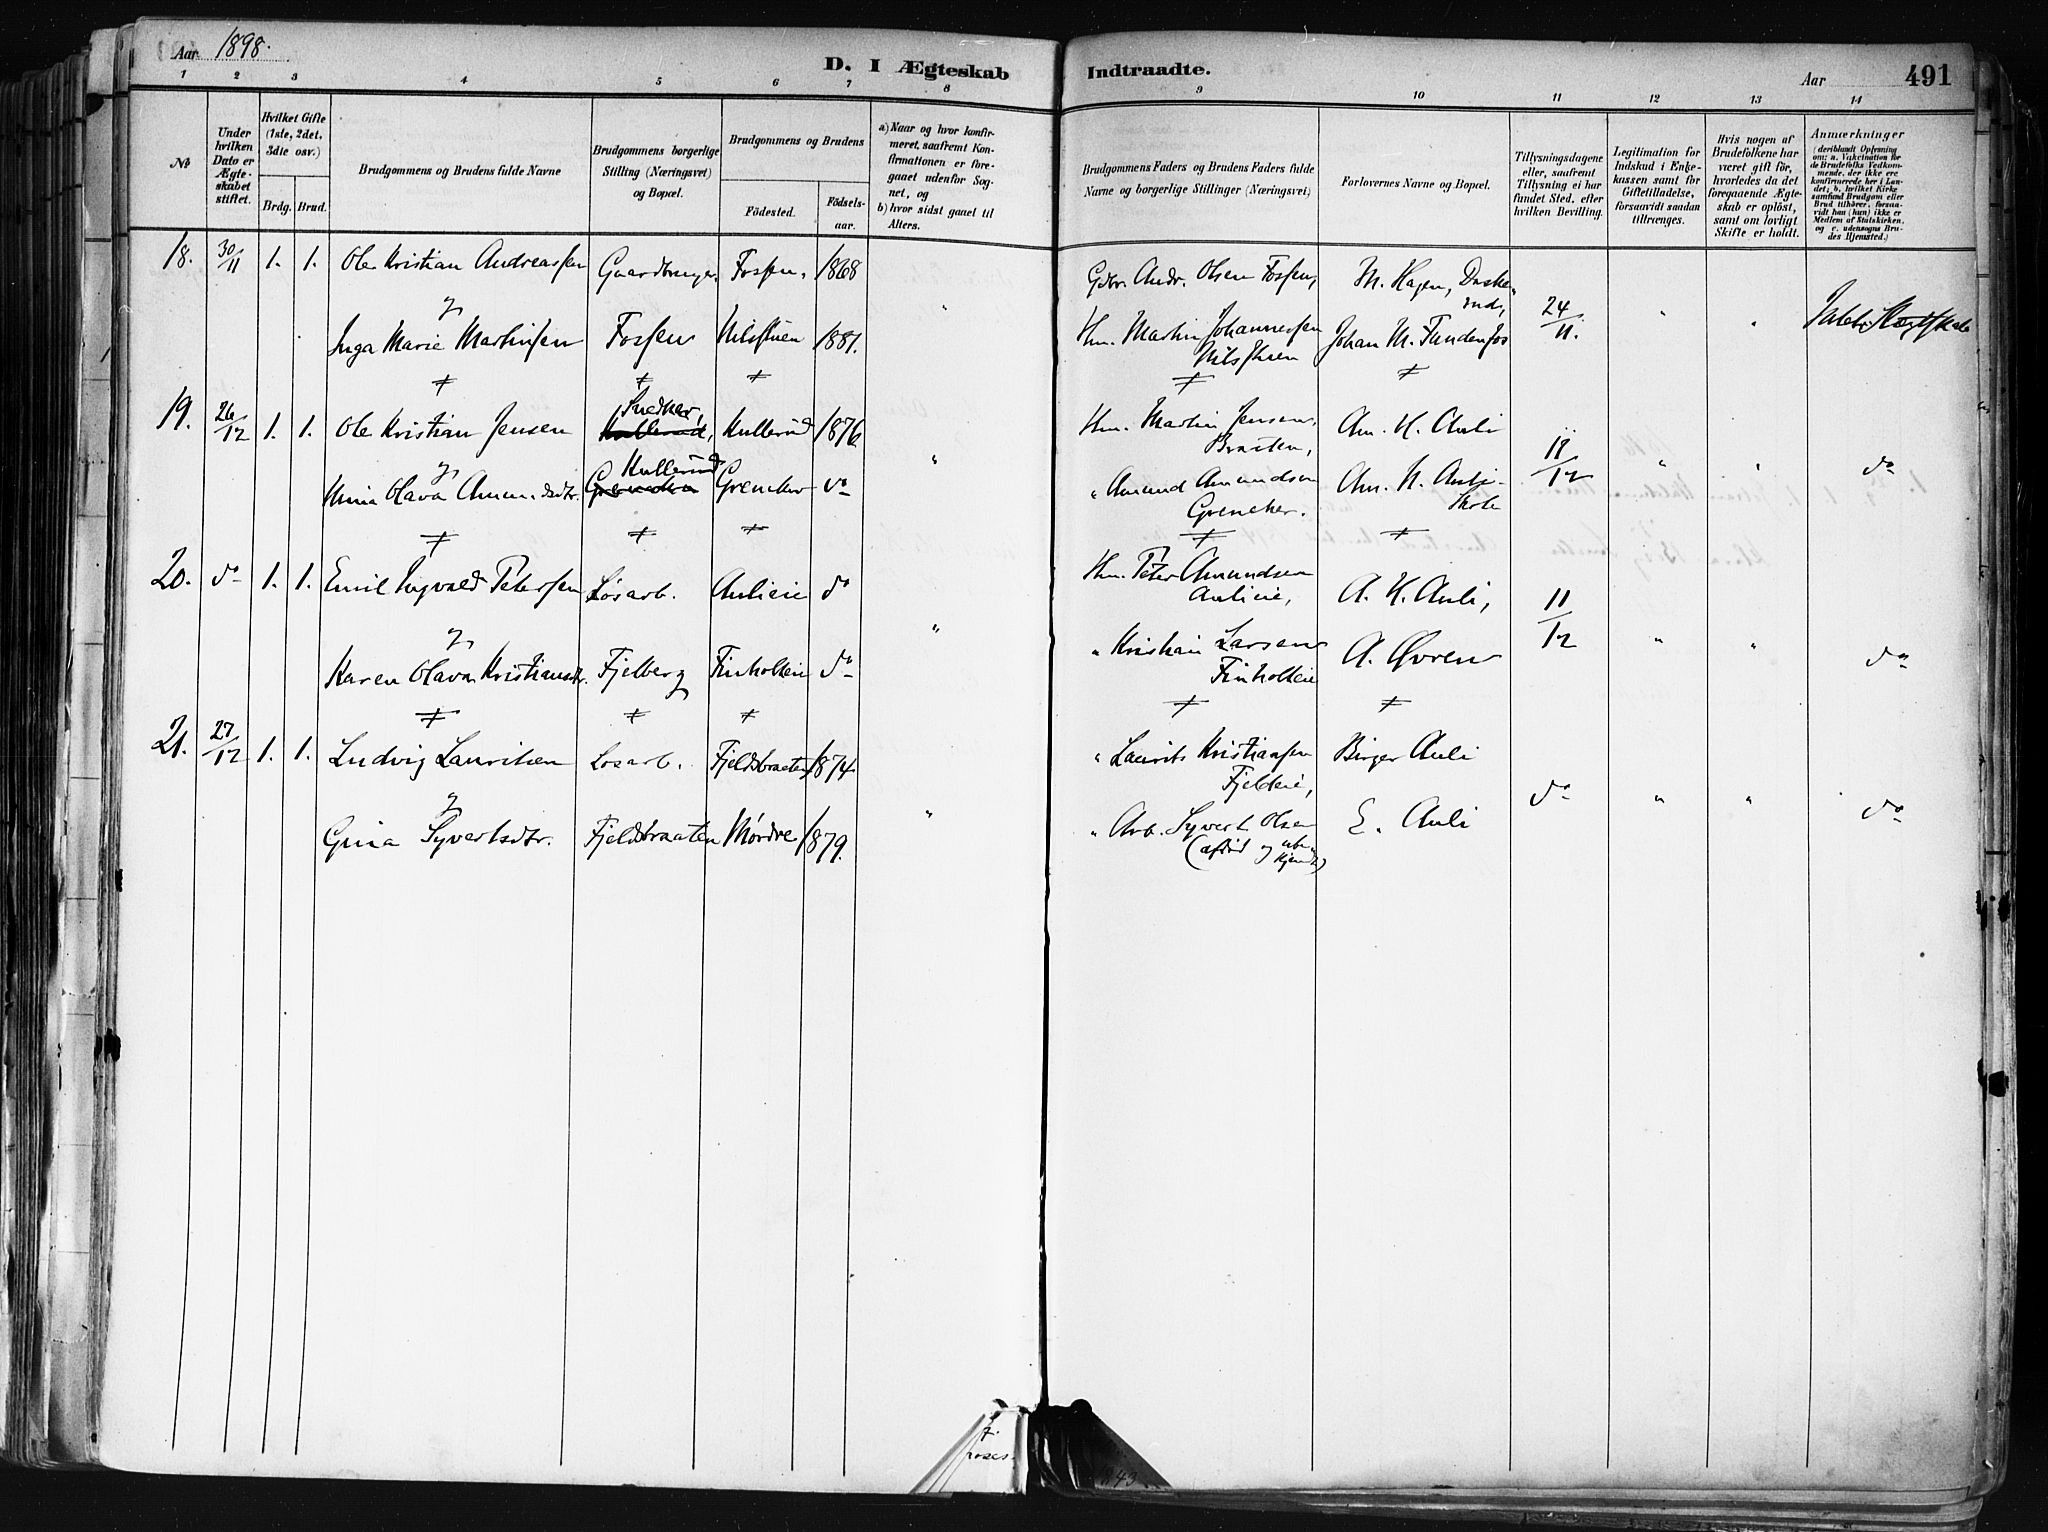 Aar 1898.
D. I Ægteskab Indtraadte.
Aar 491
1 2 3 4 5 6 7 8 9 10 11 12 13 14
No
Under hvilken Dato er Ægteskabet stiftet.
Hvilket Gifte (1ste, 2det, 3die osv.)
Brdg. Brud.
Brudgommens og Brudens fulde Navne
Brudgommens borgerlige Stilling (Næringsvei) og Bopæl.
Brudgommens og Brudens
Födested. Födselsaar.
a) Naar og hvor konfirmeret, saafremt Konfirmationen er foregaaet udenfor Sognet, og
b) hvor sidst gaaet til Alters.
Brudgommens Faders og Brudens Faders fulde Navne og borgerlige Stillinger (Næringsvei).
Forlovernes Navne og Bopæl.
Tillysningsdagene eller, saafremt Tillysning ei har fundet Sted, efter hvilken Bevilling.
Legitimation for Indskud i Enkekassen samt for Giftetilladelse, forsaavidt saadan tiltrænges.
Hvis nogen af Brudefolkene har været gift för, hvorledes da det foregaaende Ægteskab er oplöst, samt om lovligt Skifte er holdt.
Anmærkninger (deriblandt Oplysning om: a. Vakcination for de Brudefolks Vedkommende, der ikke ere konfirmerede her i Landet; b. hvilket Kirkesamfund Brudgom eller Brud tilhörer, forsaavidt han (hun) ikke er Medlem af Statskirken, og c. udensogns Brudes Hjemsted.)
18. 30/11 1. 1. Ole Kristian Andreassen Gaardbruger, Fossen, 1868 Gbr. Andr. Olsen Fossen, M. Hagen,
og " 24/11. " "
Inga Marie Martinsen Fossen Nilsstuen 1881. Hm. Martin Johannessen Nilsstuen Johan M. Fundenfos
19. 26/12 1. 1. Ole Kristian Jensen Snedker, Kullerud, Kullerud 1876 Hm. Martin Jensen, Braaten, Am. H. Auli
og " 11/12 " " do
Mina Olava Amundsdtr. Kullerud Grencher Grencher do " Amund Amundsen Grencher. Am. N. Auli Skole
20. do 1. 1. Emil Ingvald Petersen Løsarb. Aulieie do Hm. Peter Amundsen Aulieie, A. H. Auli,
og " 11/12 " " do
Karen Olava Kristiansdtr. Fjelberg Finholteie do " Kristian Larsen Finholteie A. Øvren
21. 27/12 1. 1. Ludvig Lauritsen Løsarb. Fjeldbraaten 1874 " Laurits Kristiansen Fjeldeie, Birger Auli
og " do " " do
Gina Syvertsdtr. Fjeldbraaten Mørdre 1879. " Arb. Syvert Olsen (afdød og ubekjendt) E. Auli
843